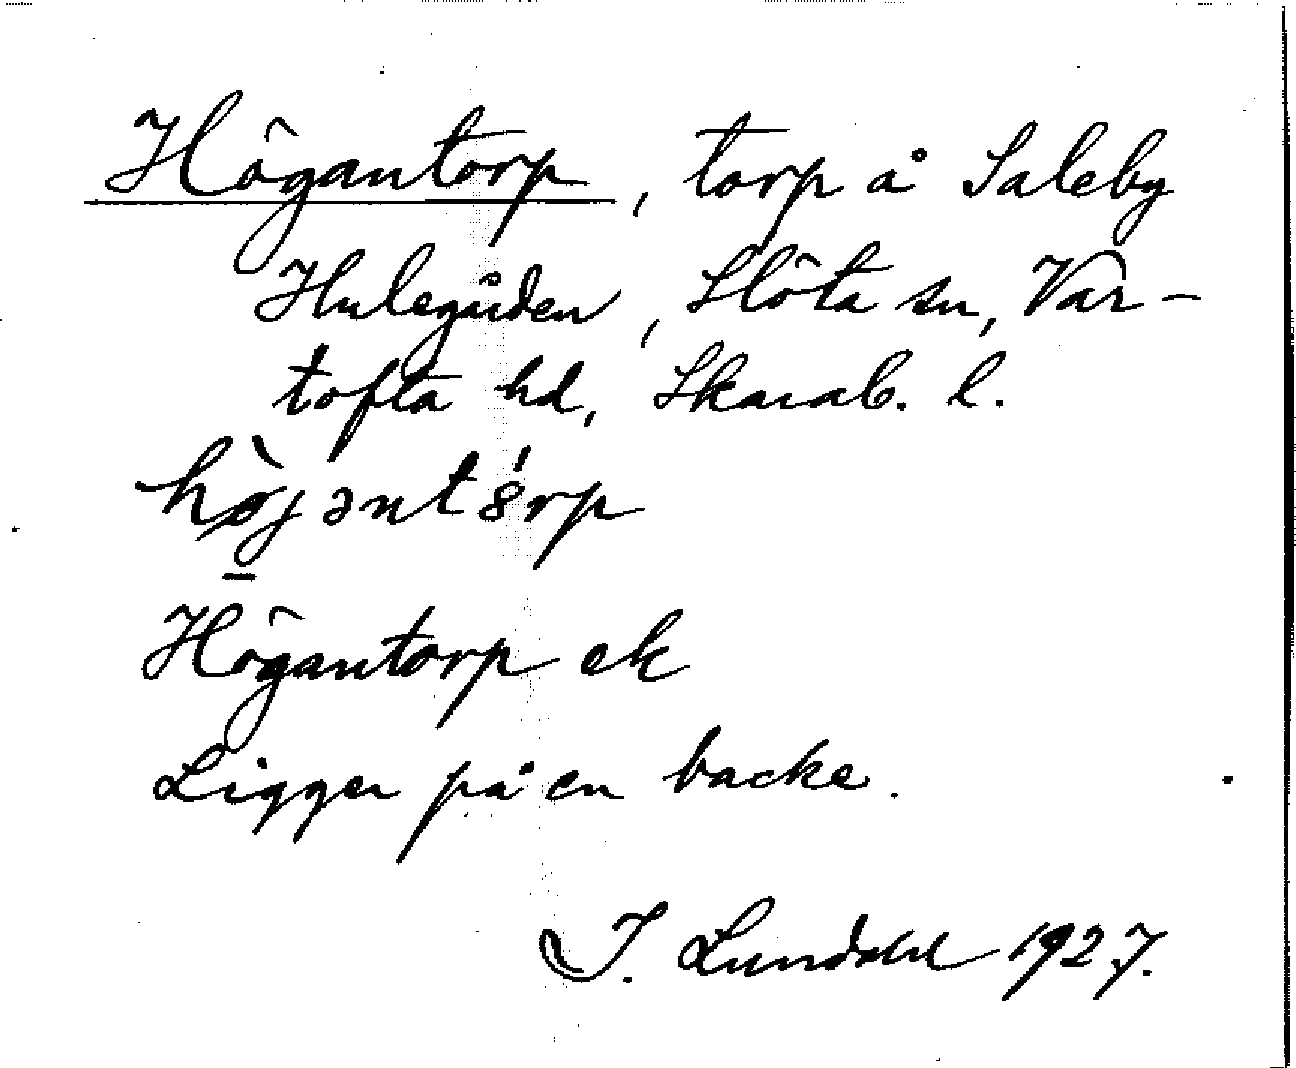 Högantorp, torp å Saleby
Hulegården, Slöta sn, Var-
tofta hd, Skarab. l.
Högantorp ek
Ligger på en backe.
I. Lundahl 1927.